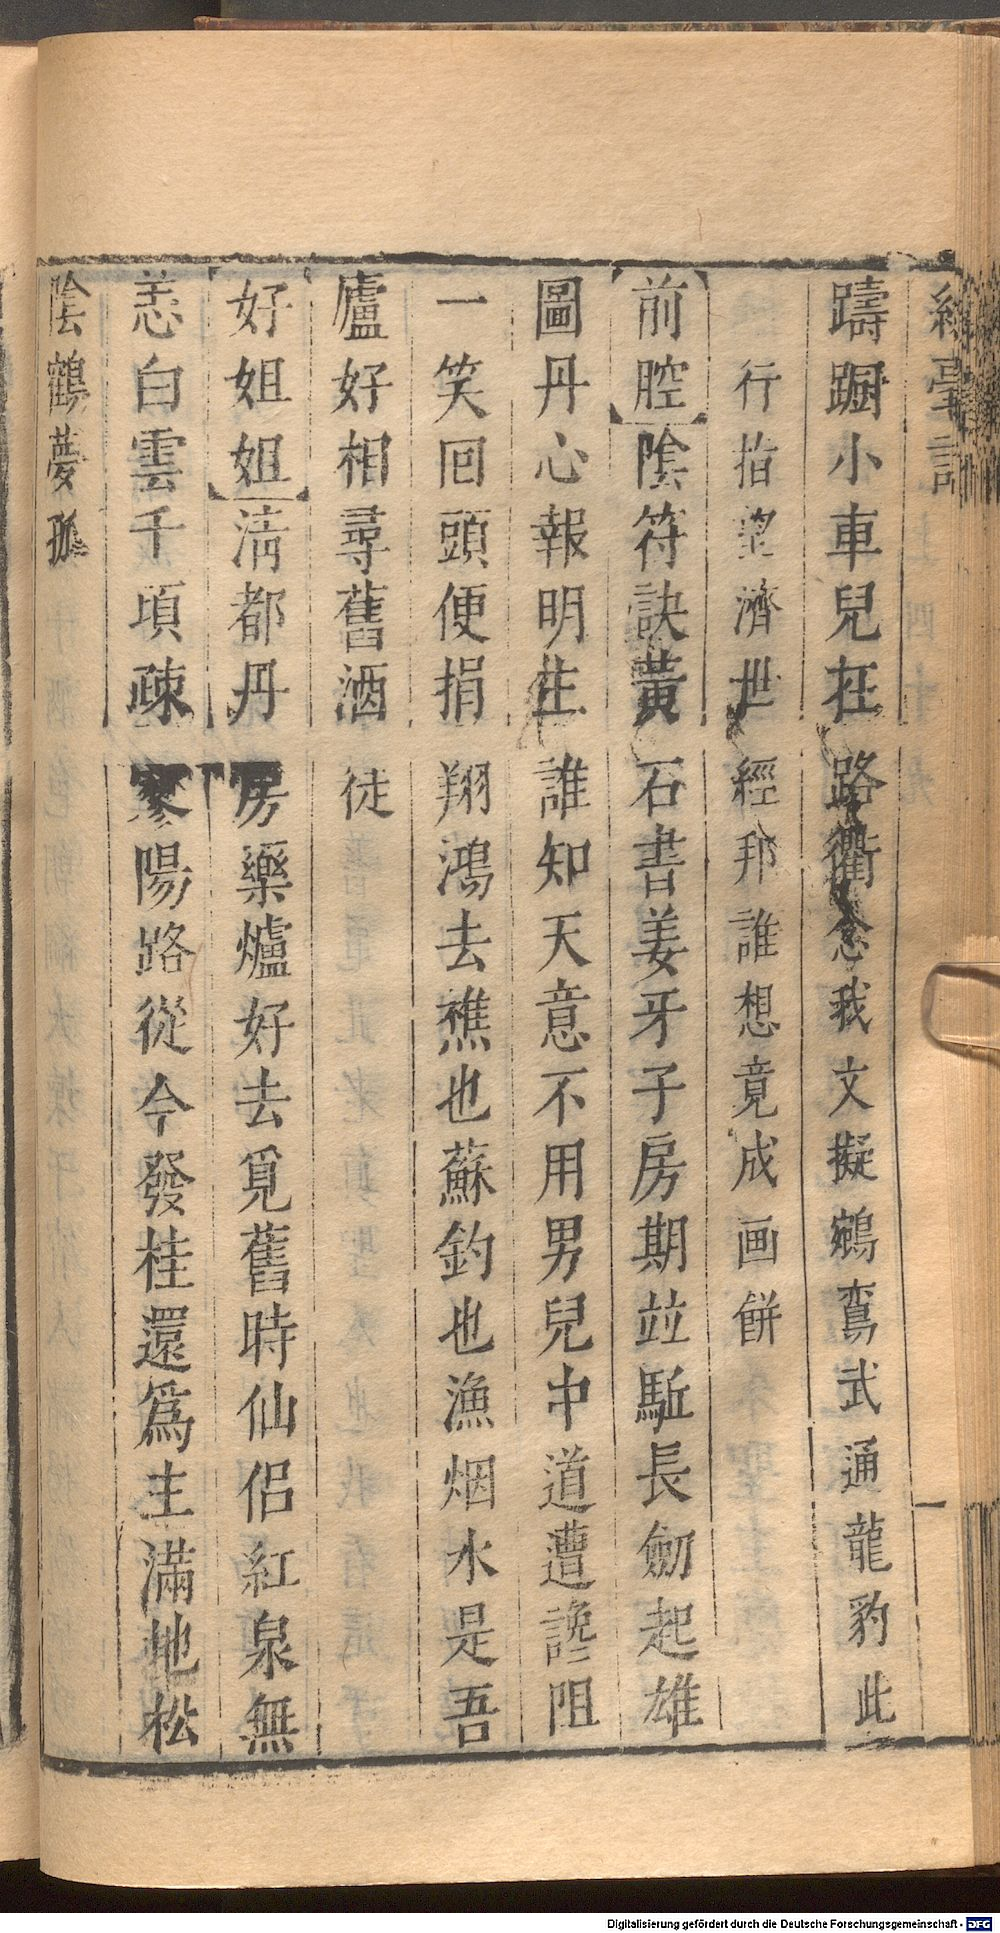 躊蹰小車兒在路衢念我文擬鵷鸞武通龍豹此
行指望濟世經邦誰想竟成画餅
前腔陰符訣黃石書姜牙子房期並駈長劒起雄
圖丹心報明生誰知天意不用男兒中道遭讒阻
一笑回頭便捐翔鴻去樵也蘇釣也漁烟水是吾
廬好相尋舊酒徒
好姐姐淸都丹房藥爐好去覓舊時仙侣紅泉無
恙白雲千頃疎寥陽路從今發桂還爲主滿地松
陰鶴夢孤
Digitalisierung gefördert durch die Deutsche Forschungsgemeinschaft - DFG